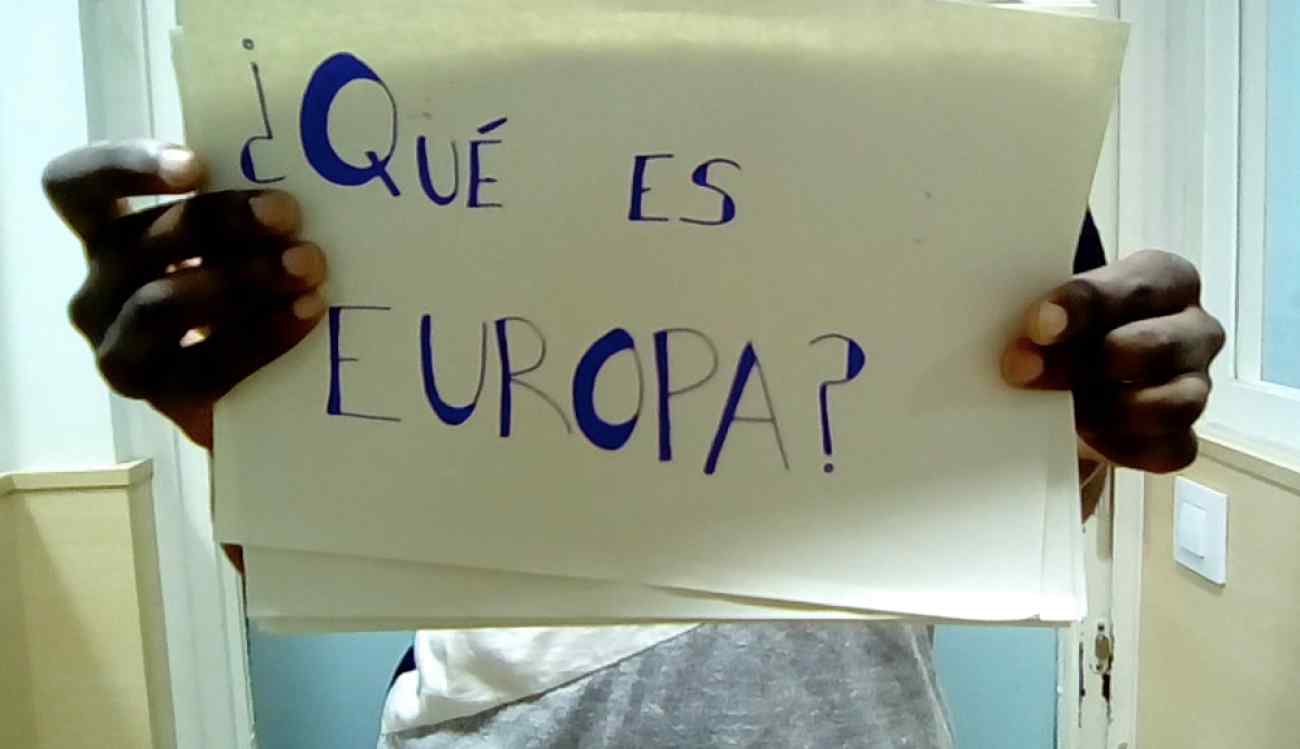 ¿QUÉ ES
EUROPA?